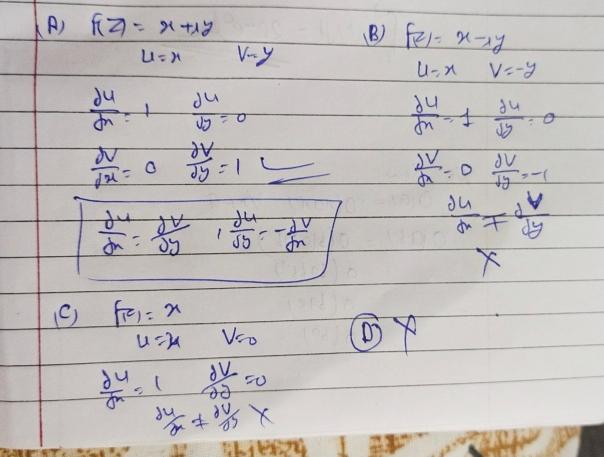 (A) f(z) = x+iy
u=x v=y
∂u/∂x = 1 ∂u/∂y = 0
∂v/∂x = 0 ∂v/∂y = 1 ✓
∂u/∂x = ∂v/∂y , ∂u/∂y = -∂v/∂x
(B) f(z) = x-iy
u=x v=-y
∂u/∂x = 1 ∂u/∂y = 0
∂v/∂x = 0 ∂v/∂y = -1
∂u/∂x ≠ ∂v/∂y
X
(C) f(z) = x
u=x v=0
∂u/∂x = 1 ∂v/∂y = 0
∂u/∂x ≠ ∂v/∂y X
(D) X